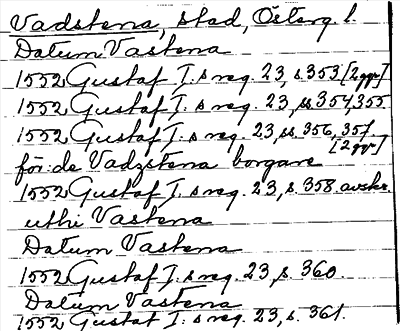 Vadstena, stad, Österg. l.
Datum Vastena
1552 Gustaf I:s reg. 23, s. 353 [2 ggr]
1552 Gustaf I:s reg. 23, ss. 354, 355
1552 Gustaf I:s reg. 23, ss. 356, 357 [2 ggr]
för: de Vadzstena borgare
1552 Gustaf I:s reg. 23, s. 358. avskr.
uthi Vastena
Datum Vastena
1552 Gustaf I:s reg. 23, s. 360.
Datum Vastena
1552 Gustaf I:s reg. 23, s. 361.